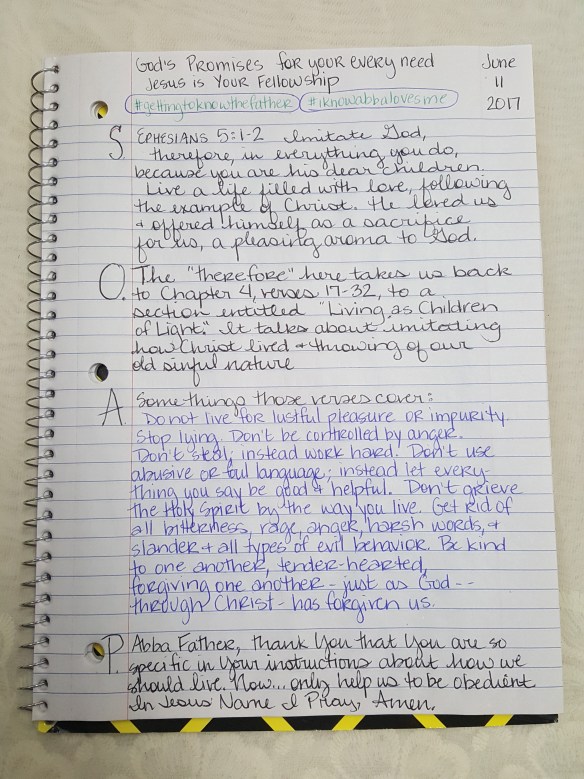 God's Promises for your every need
Jesus is Your Fellowship
June
11
2017
#gettingtoknowthefather #iknowabbalovesme
S. EPHESIANS 5:1-2 Imitate God,
therefore, in everything you do,
because you are his dear children.
Live a life filled with love, following
the example of Christ. He loved us
+ offered himself as a sacrifice
for us, a pleasing aroma to God.
O. The "therefore" here takes us back
to Chapter 4, verses 17-32, to a
section entitled "Living as Children
of Light." It talks about imitating
how Christ lived + throwing of our
old sinful nature
A. Some things those verses cover:
Do not live for lustful pleasure or impurity.
Stop lying. Don't be controlled by anger.
Don't steal; instead work hard. Don't use
abusive or foul language; instead let every-
thing you say be good + helpful. Don't grieve
the Holy Spirit by the way you live. Get rid of
all bitterness, rage, anger, harsh words, +
slander + all types of evil behavior. Be kind
to one another, tender-hearted,
forgiving one another - just as God --
through Christ - has forgiven us.
P. Abba Father, thank You that You are so
specific in Your instructions about how we
should live. Now... only help us to be obedient.
In Jesus Name I Pray, Amen.